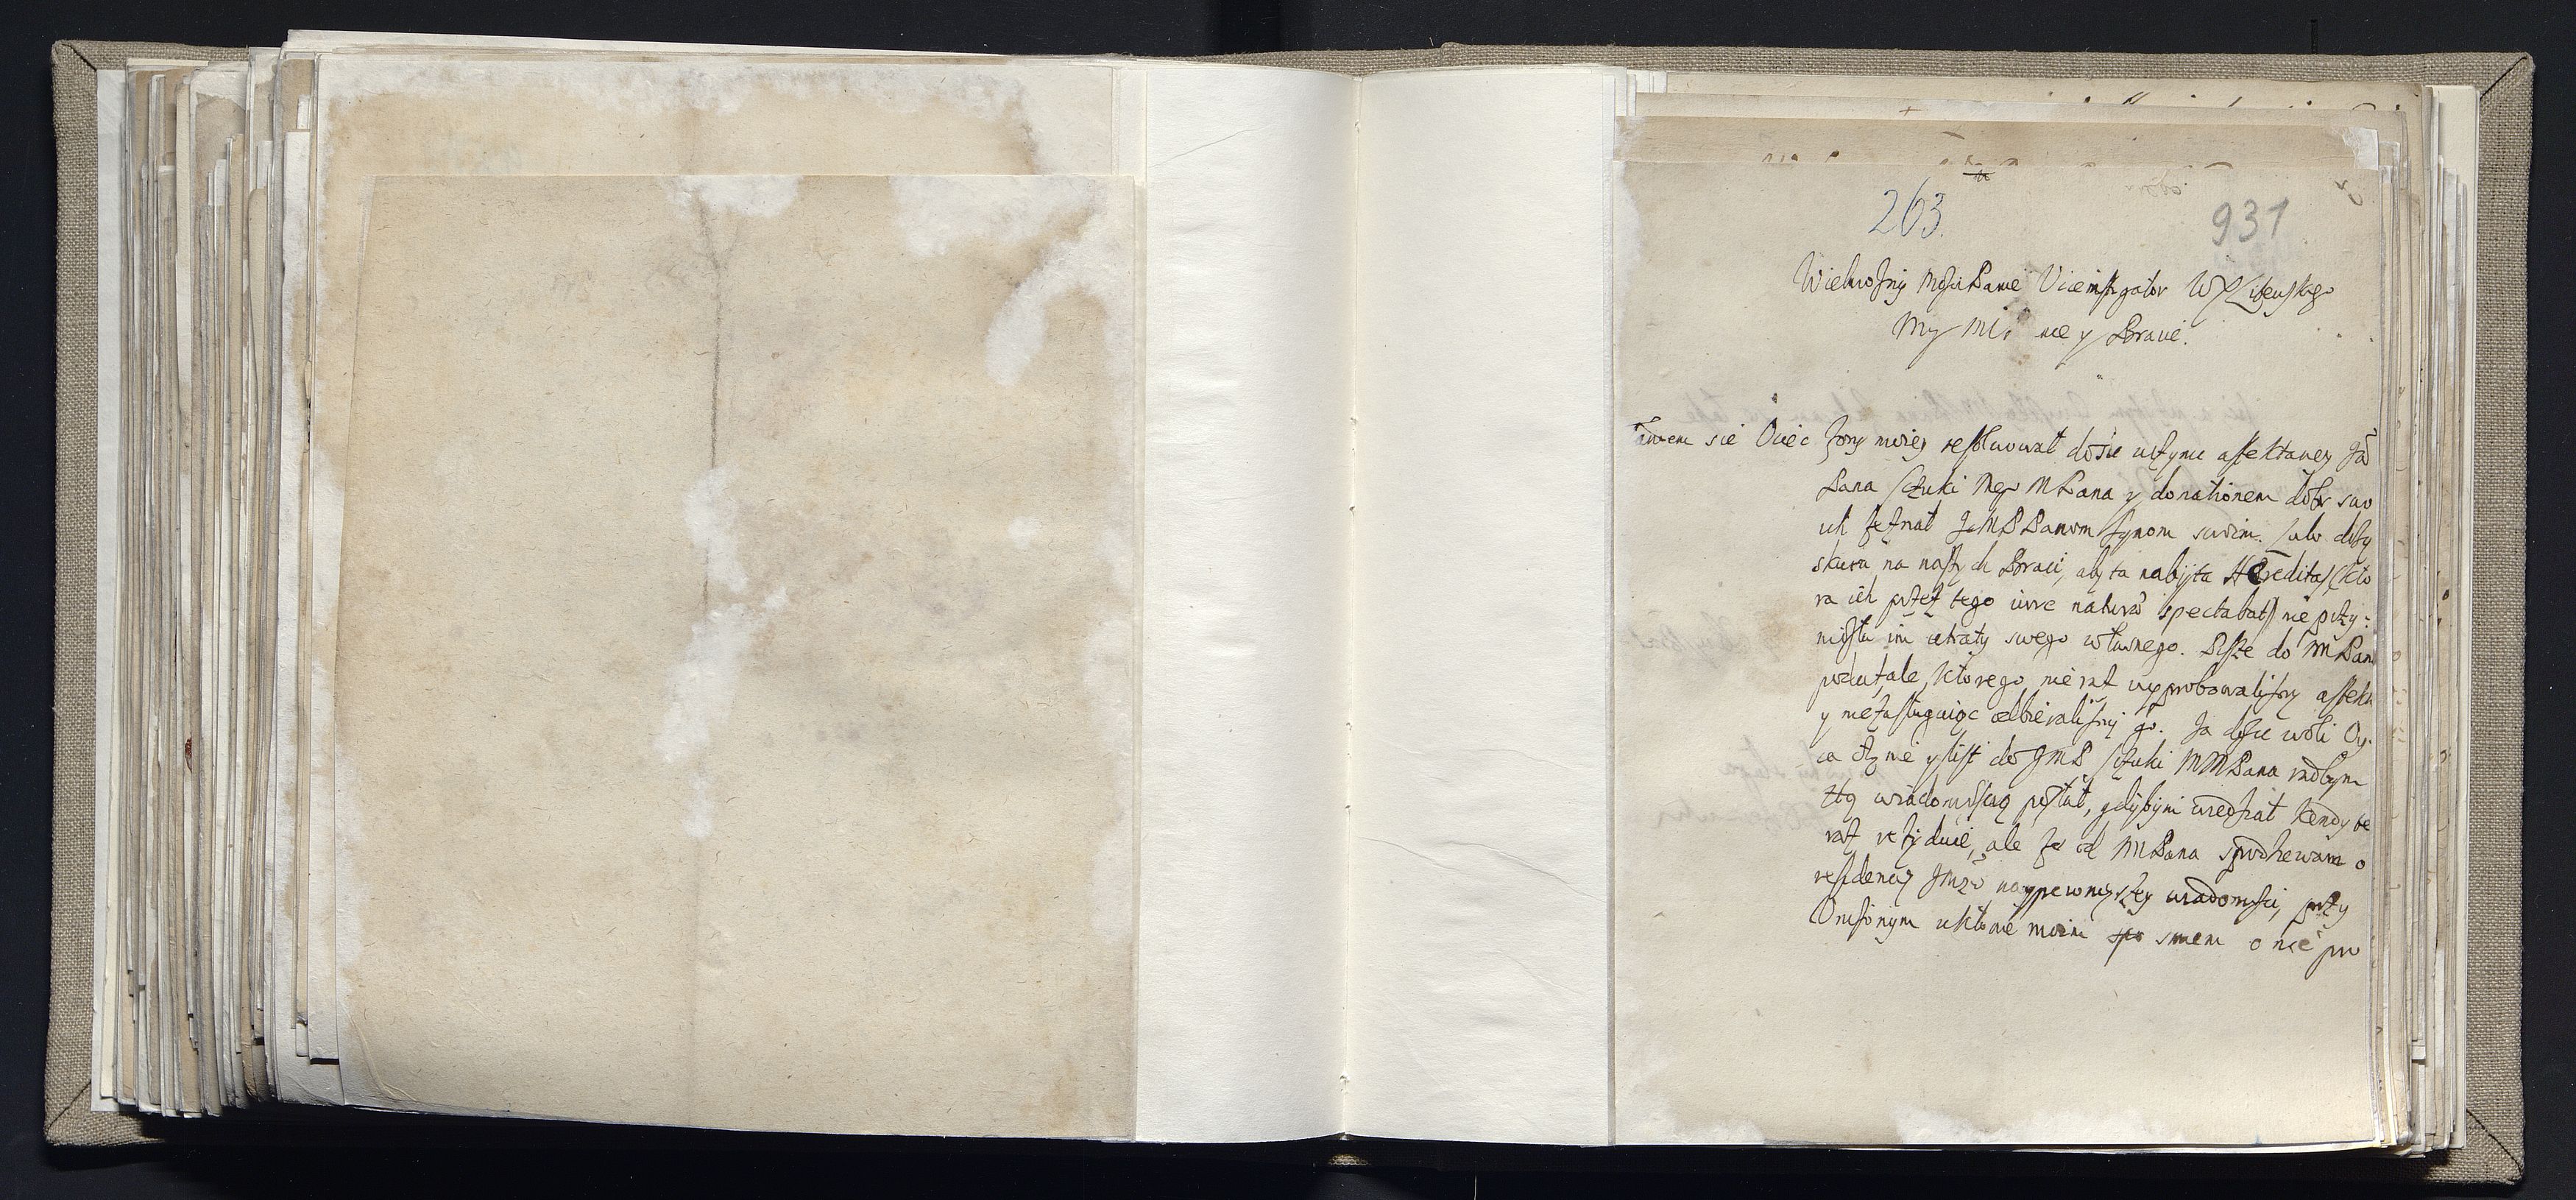 263.
931
Wielmożny Mośći Panie Viceinstigator W X Litewskiego
My Mi nie y Bracie.
się Ociec żony moiey resolwował dosić uczynic affektaney
Pana Sczuki Mego MPana y donationem dobr swo
ich zeznał JchMP Panom Synom swoim.
na naszych Braci, aby ta nabyta Hereditas (kto
ra ich przez tego iure naturae spectabat) nie przy:
niosła im utraty swego własnego. Pisze do MPana
poufale, ktorego nie raz wyprobowalismy affektu
y niezasługuiąc odbieralismy go. Ja dosic woli Oy
ca czynie y list do JMP Sczuki MMPana radbym
z tą wiadomoscią posłał, gdybym wiedział kendy te
raz rezyduie, ale że od MPana spodziewam o
residencyi Jmsci naypewnieyszey wiadomosci, przy
Unizonym ukłonie moim smiem o nie pro